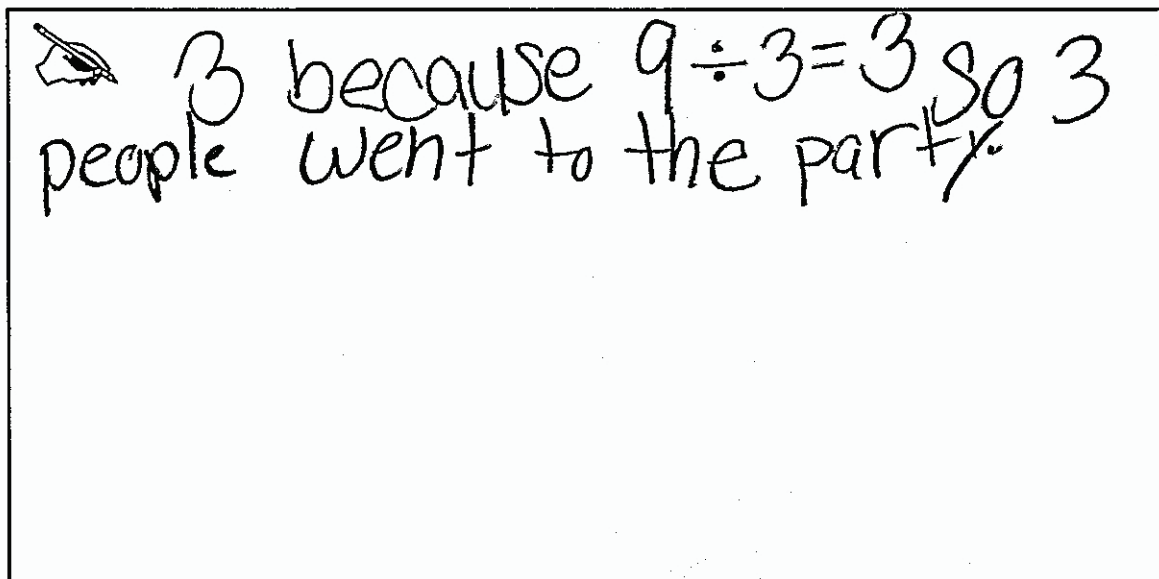 3 because 9÷3=3 so 3
people went to the party.